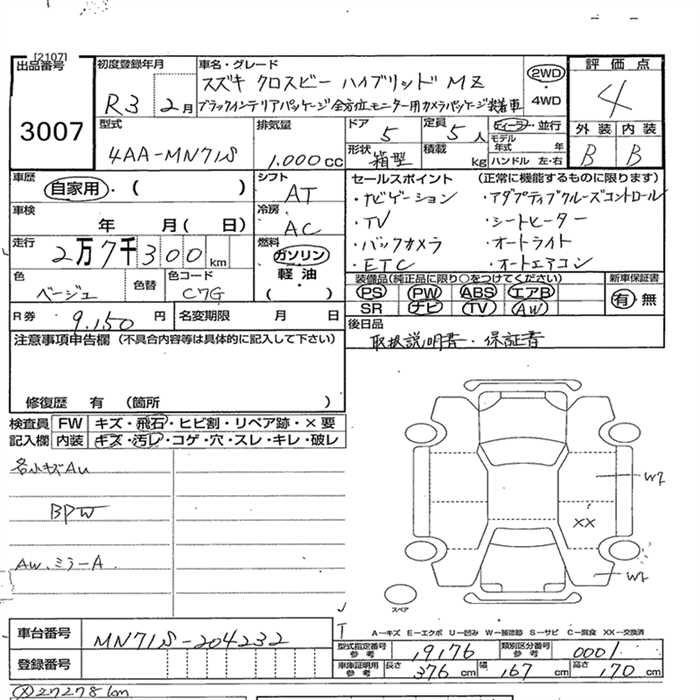 [2107]
出品番号
3007
初度登録年月
R3 2月
車名・グレード
スズキ クロスビー ハイブリッド MZ
ブラックインテリアパッケージ 全方位モニター用カメラパッケージ装着車
2WD
・
4WD
評価点
4
外装 内装
B B
型式
4AA-MN71S
排気量
1.000cc
ドア 5
定員 5人
形状 箱型
積載 kg
ディーラー・並行
モデル年式 年
ハンドル 左・右
車歴
自家用・( )
車検
年 月( 日)
走行
2万7千300km
色
ベージュ
色替
色コード
C7G
シフト
AT
冷房
AC
燃料
ガソリン
軽油
( )
R券 9.150円
名変期限 月 日
セールスポイント (正常に機能するものに限ります)
・ナビゲーション ・アダプティブクルーズコントロール
・TV ・シートヒーター
・バックカメラ ・オートライト
・ETC ・オートエアコン
装備品(純正品に限り○をつけてください)
PS PW ABS エアB
SR ナビ TV AW
新車保証書
有・無
後日品
取扱説明書・保証書
注意事項申告欄(不具合内容等は具体的に記入して下さい)
修復歴 有 (箇所 )
検査員記入欄
FW キズ・飛石・ヒビ割・リペア跡・×要
内装 キズ・汚レ・コゲ・穴・スレ・キレ・破レ
各小キズAu
BPW
AW.ミラーA
W2
XX
W2
スペア
A－キズ E－エクボ U－凹み W－補修跡 S－サビ C－腐食 XX－交換済
車台番号
MN71S-204232
登録番号
型式指定番号 参考 19176
類別区分番号 参考 0001
車庫証明用 参考 長さ 376cm 幅 167cm 高さ 170cm
(メ)27278km